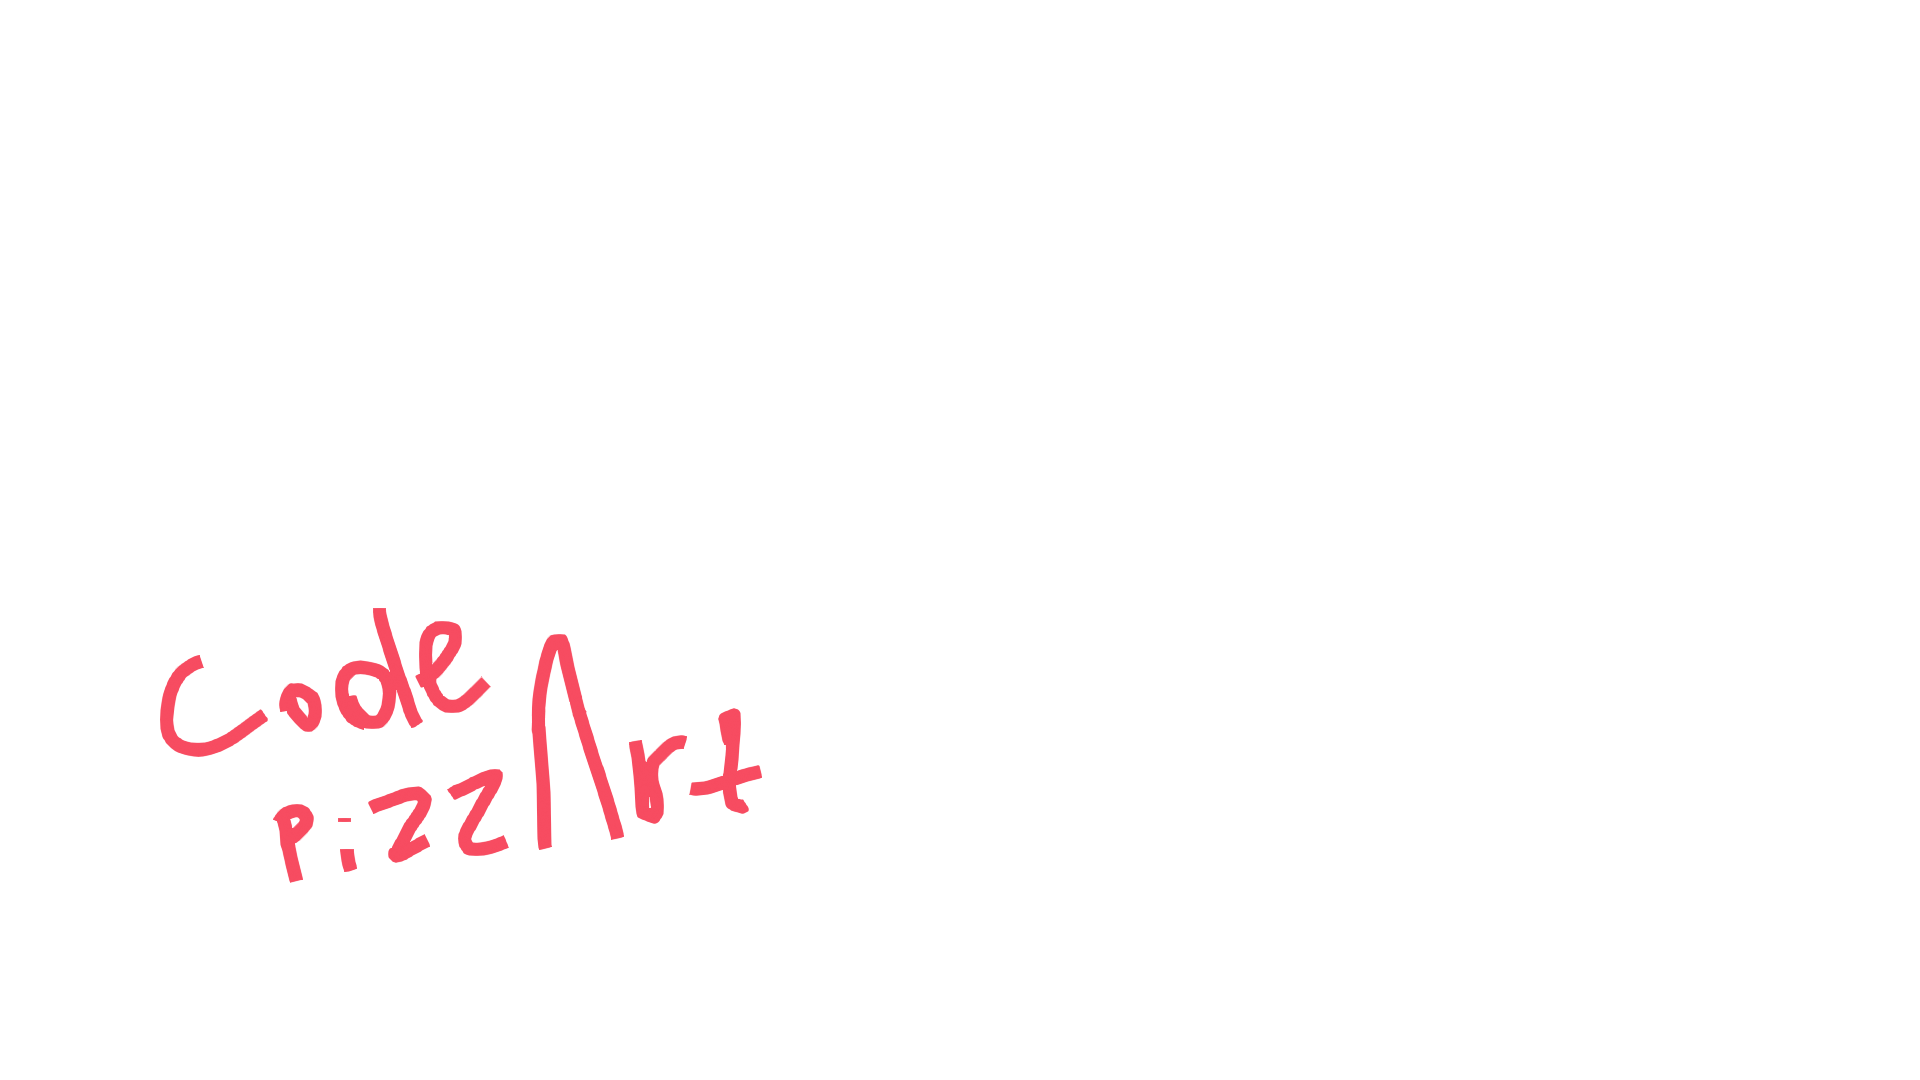 Code
pizzArt